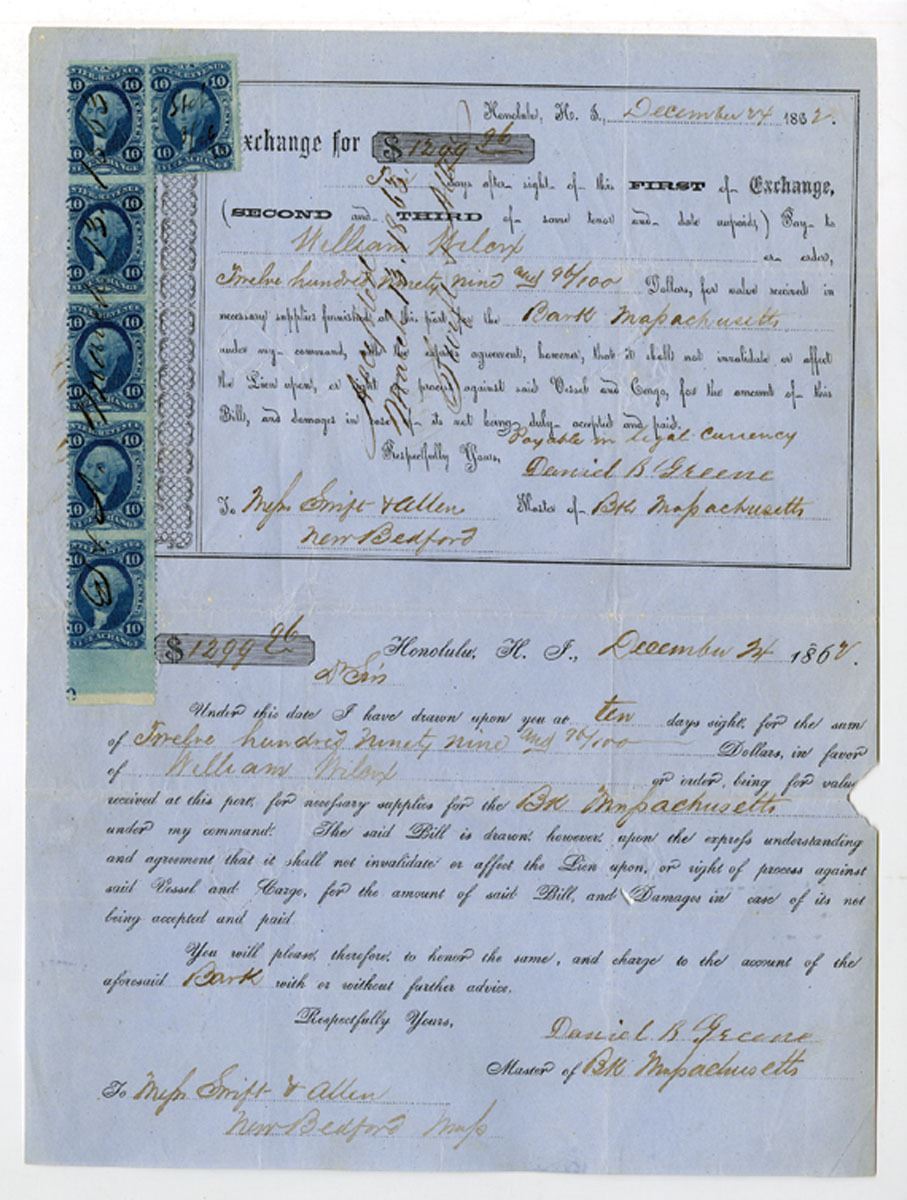 Honolulu, H. I., December 24 1862.
Exchange for $1299 96
days after sight of this FIRST of Exchange,
(SECOND and THIRD of same tenor and date unpaid,) Pay to
William Wilcox or order,
Twelve hundred Ninety Nine and 96/100 Dollars, for value received in
necessary supplies furnished at this port, for the Bark Massachusetts
under my command, with the express agreement, however, that it shall not invalidate or affect
the Lien upon, or right of process against said Vessel and Cargo, for the amount of this
Bill, and damages in case of its not being duly accepted and paid.
Payable in legal currency
Respectfully Yours, Daniel B Greene
To Messrs Swift & Allen Master of Bk Massachusetts
New Bedford
Accepted
March 13. 1863
Swift & Allen
1863
13
March
10 10
U.S. INTER. REVENUE
EXCHANGE
10 10
$1299 96 Honolulu, H. I., December 24 1862
Dr Sirs
Under this date I have drawn upon you at ten days sight, for the sum
of Twelve hundred Ninety nine and 96/100 Dollars, in favor
of William Wilcox or order, being for value
received at this port, for necessary supplies for the Bk Massachusetts
under my command. The said Bill is drawn, however, upon the express understanding
and agreement that it shall not invalidate or affect the Lien upon, or right of process against
said Vessel and Cargo, for the amount of said Bill, and Damages in case of its not
being accepted and paid
You will please, therefore, to honor the same, and charge to the account of the
aforesaid Bark with or without further advice.
Respectfully Yours,
Daniel B. Greene
Master of Bk Massachusetts
To Messrs Swift & Allen
New Bedford Mass